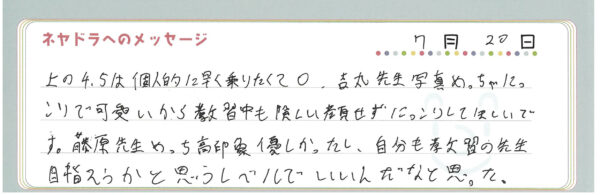 ネヤドラへのメッセージ
7月 20日
上の4.5は個人的に早く乗りたくて○. 吉丸先生写真めっちゃにっ
こりで可愛いから教習中も険しい顔せずにっこりしてほしいで
す。藤原先生めっち高印象優しかったし、自分も教習の先生
目指そうかと思うレベルでいいんだなと思った。